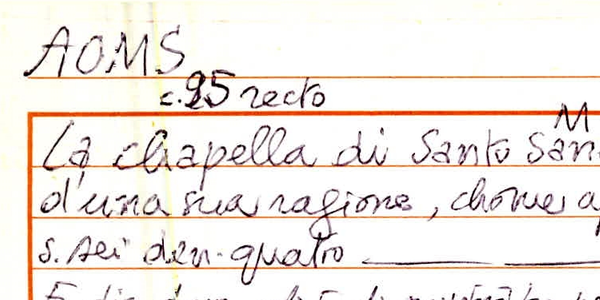 AOMS
c. 25 recto
M
La chapella di Santo San
d'una sua ragione, chome a
s. sei den. quatro
E di